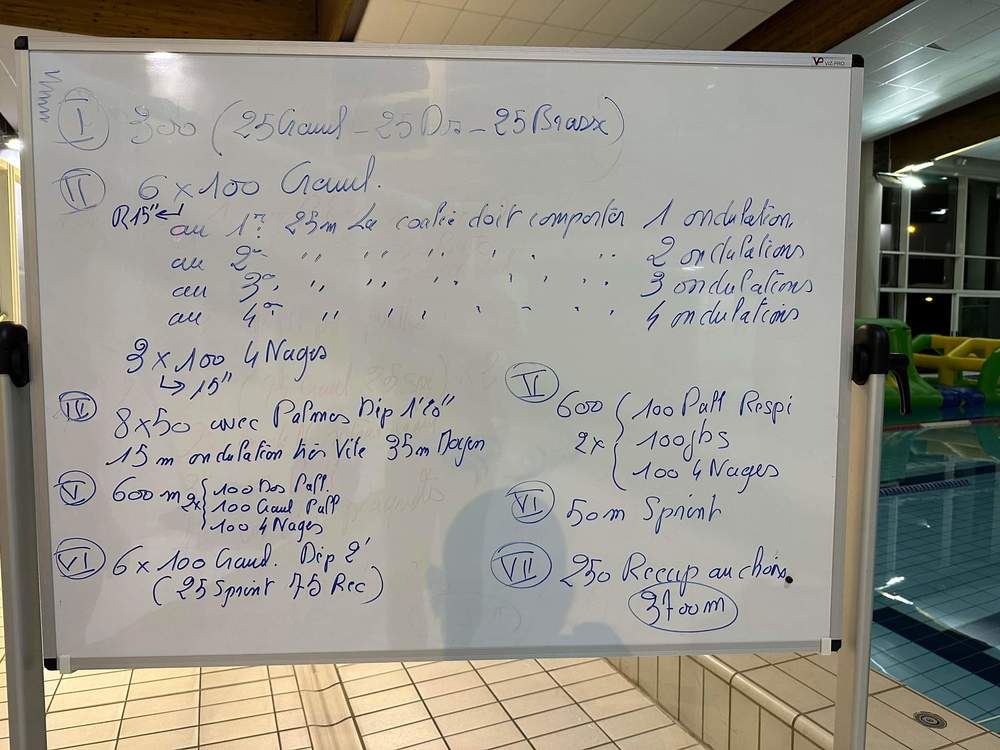 VP VIZ-PRO
I 300 (25 Craul - 25 Dos - 25 Brasse)
II 6 x 100 Craul.
R15" au 1er 25m La coulée doit comporter 1 ondulation.
au 2e " " " " " " 2 ondulations
au 3e " " " " " " 3 ondulations
au 4e " " " " " " 4 ondulations
3 x 100 4 Nages
↳ 15"
IV 8x50 avec Palmes Dip 1'20"
15 m ondulation très Vite 35m Moyen
V 600 m 2x { 100 Dos Pall.
100 Craul Pall
100 4 Nages
VI 6 x 100 Craul. Dip 2'
(25 Sprint 75 Rec)
V 600 2x { 100 Pull Respi
100 jbs
100 4 Nages
VI 50m Sprint
VII 250 Recup au choix.
3700m